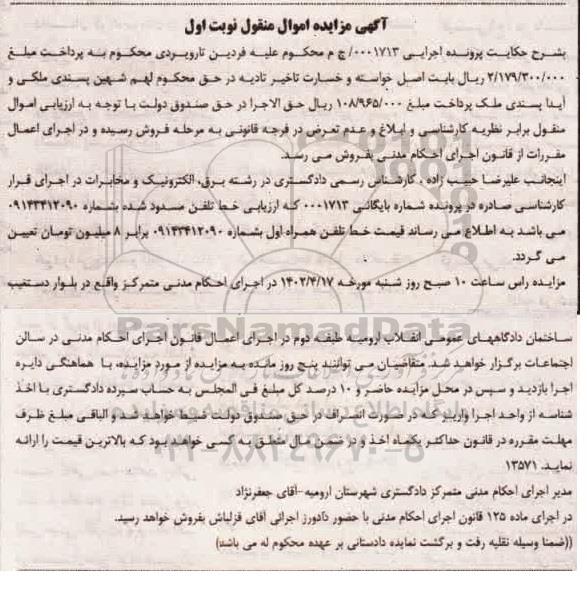 آگهی مزایده اموال منقول نوبت اول
بشرح حکایت پرونده اجرایی ۰۰۰۱۷۱۳/ ج م محکوم علیه فردین تارویردی محکوم به پرداخت مبلغ
۲/۱۷۹/۳۰۰/۰۰۰ ریال بابت اصل خواسته و خسارت تاخیر تادیه در حق محکوم لهم شهین پسندی ملکی و
آیدا پسندی ملک پرداخت مبلغ ۱۰۸/۹۶۵/۰۰۰ ریال حق الاجرا در حق صندوق دولت با توجه به ارزیابی اموال
منقول برابر نظریه کارشناسی و ابلاغ و عدم تعرض در فرجه قانونی به مرحله فروش رسیده و در اجرای اعمال
مقررات از قانون اجرای احکام مدنی بفروش می رسد.
اینجانب علیرضا حبیب زاده، کارشناس رسمی دادگستری در رشته برق، الکترونیک و مخابرات در اجرای قرار
کارشناسی صادره در پرونده شماره بایگانی ۰۰۰۱۷۱۳ که ارزیابی خط تلفن مسدود شده بشماره ۰۹۱۴۳۴۱۲۰۹۰
می باشد به اطلاع می رساند قیمت خط تلفن همراه اول بشماره ۰۹۱۴۳۴۱۲۰۹۰ برابر ۸ میلیون تومان تعیین
می گردد.
مزایده راس ساعت ۱۰ صبح روز شنبه مورخه ۱۴۰۲/۴/۱۷ در اجرای احکام مدنی متمرکز واقع در بلوار دستغیب
ساختمان دادگاههای عمومی انقلاب ارومیه طبقه دوم در اجرای اعمال قانون اجرای احکام مدنی در سالن
اجتماعات برگزار خواهد شد. متقاضیان می توانند پنج روز مانده به مزایده از مورد مزایده، با هماهنگی دایره
اجرا بازدید و سپس در محل مزایده حاضر و ۱۰ درصد کل مبلغ فی المجلس به حساب سپرده دادگستری با اخذ
شناسه از واحد اجرا واریز که در صورت انصراف در حق صندوق دولت ضبط خواهد شد و الباقی مبلغ ظرف
مهلت مقرره در قانون حداکثر یکماه اخذ و در ضمن مال متعلق به کسی خواهد بود که بالاترین قیمت را ارائه
نماید. ۱۳۵۷۱
مدیر اجرای احکام مدنی متمرکز دادگستری شهرستان ارومیه-آقای جعفرنژاد
در اجرای ماده ۱۲۵ قانون اجرای احکام مدنی با حضور دادورز اجرائی آقای قزلباش بفروش خواهد رسید.
((ضمنا وسیله نقلیه رفت و برگشت نماینده دادستانی بر عهده محکوم له می باشد)
ParsNamadData
۰۲۱-۸۸۳۴۹۶۷۰-۵